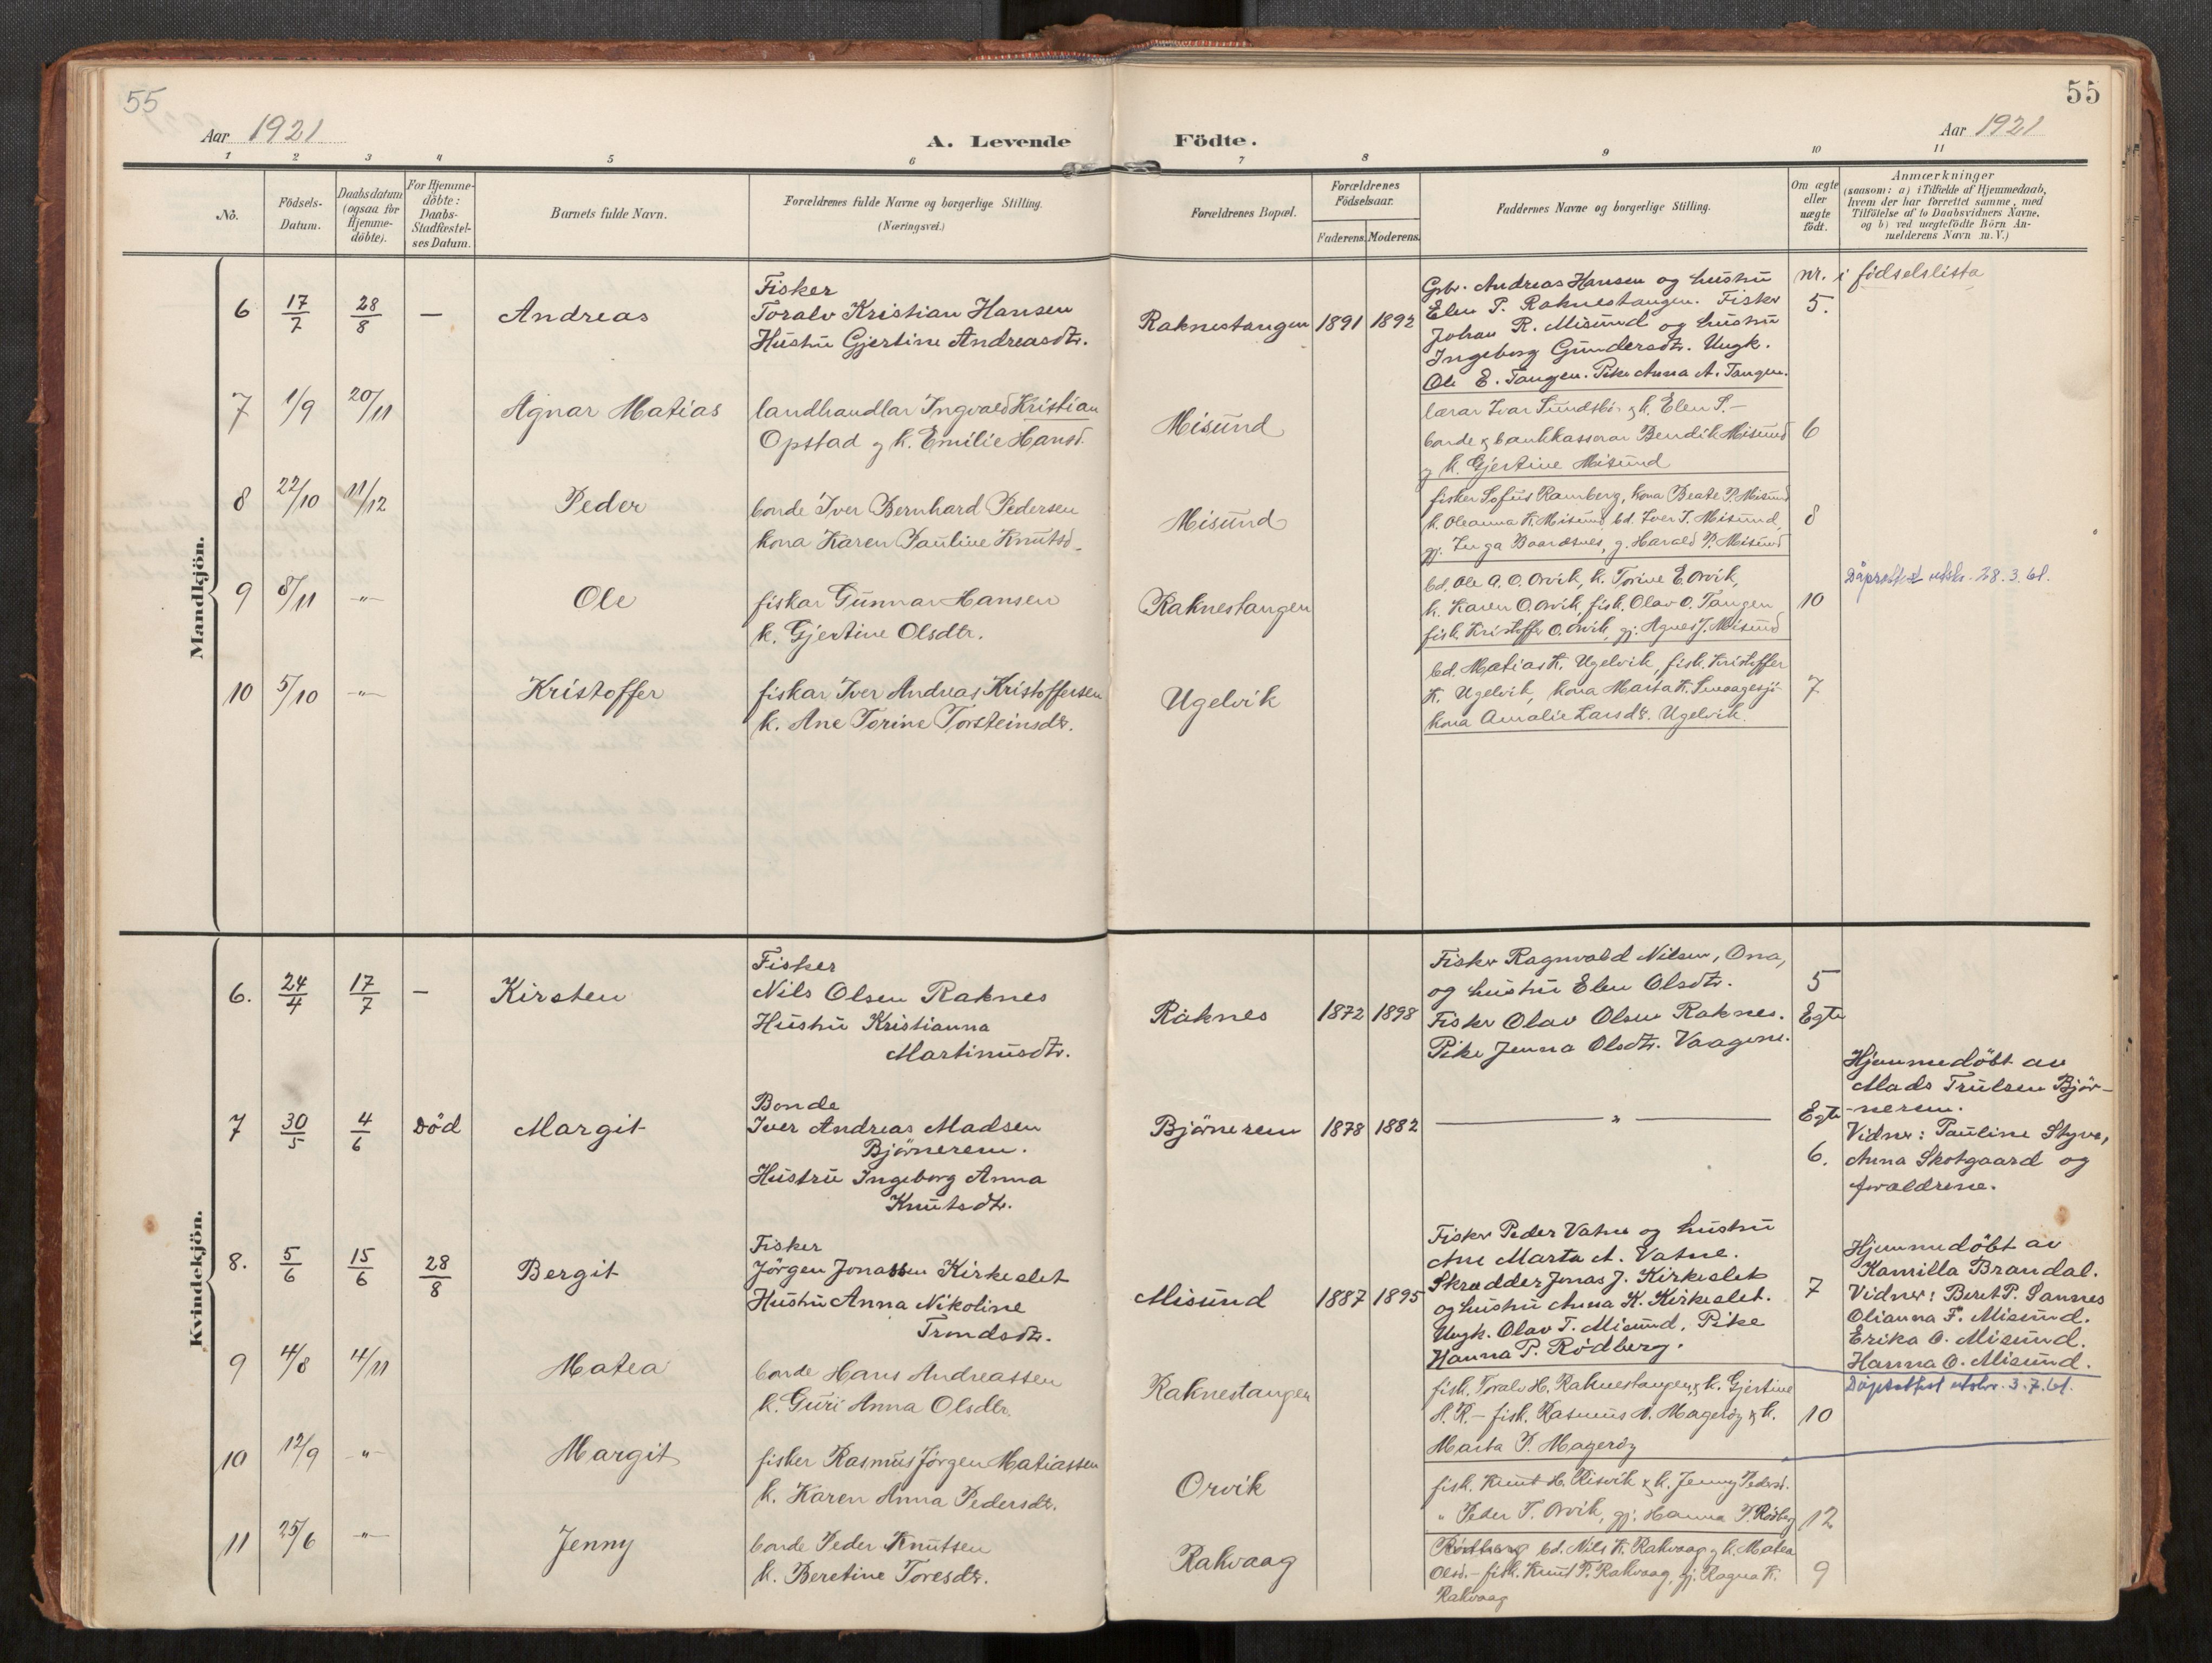 55
55
Aar 1921
A. Levende
Födte.
Aar 1921
1 2 3 4 5 6 7 8 9 10 11
No.
Födsels-
Datum.
Daabsdatum
(ogsaa for
Hjemme-
döbte).
For Hjemme-
döbte:
Daabs-
Stadfæstel-
ses Datum.
Barnets fulde Navn.
Forældrenes fulde Navne og borgerlige Stilling.
(Næringsvei.)
Forældrenes Bopæl.
Forældrenes
Födselsaar.
Faderens. Moderens.
Faddernes Navne og borgerlige Stilling.
Om ægte
eller
uægte
födt.
Anmærkninger
(saasom: a) i Tilfælde af Hjemmedaab,
hvem der har forrettet samme, med
Tilföielse af to Daabsvidners Navne,
og b) ved uægtefödte Börn An-
melderens Navn m. V.)
Mandkjön.
6 17/7 28/8 — Andreas
Fisker
Toralv Kristian Hansen
Hustru Gjertine Andreasdtr.
Raknestangen 1891 1892
Gbr. Andreas Hansen og hustru
Elen P. Raknestangen. Fisker
Johan R. Misund og hustru
Ingeborg Gundersdtr. Ungk.
Ole E. Tangen. Pike Anna A. Tangen.
nr. i födselslista
5.
7 1/9 20/11 Agnar Matias
landhandlar Ingvald Kristian
Opstad og k. Emilie Hansd.
Misund
lærar Ivar Sundsbö & k. Elen S.—
bonde & bankkasserar Bendik Misund
og k. Gjertine Misund
6
8 22/10 11/12 Peder
bonde Iver Bernhard Pedersen
kona Karen Pauline Knutsd.
Misund
fisker Sofus Ramberg, kona Beate P. Misund
k. Oleanna K. Misund, bd. Iver I. Misund,
gj. Inga Baardsnes, g. Harald P. Misund
8
9 8/11 —"— Ole
fiskar Gunnar Hansen
k. Gjertine Olsdtr.
Raknestangen
bd. Ole A. O. Orvik, k. Torine E. Orvik,
k. Karen O. Orvik, fisk. Olav O. Tangen
fisk. Kristoffer O. Orvik, gj. Agnes J. Misund
10
Dåpsattest utskr. 28.3.61.
10 5/10 —"— Kristoffer
fiskar Iver Andreas Kristoffersen
k. Ane Torine Torsteinsdtr.
Ugelvik
bd. Matias K. Ugelvik, fisk. Kristoffer
K. Ugelvik, kona Marta K. Smaagesjö
kona Amalie Larsdtr. Ugelvik.
7
Kvindekjön.
6. 24/4 17/7 — Kirsten
Fisker
Nils Olsen Raknes
Hustru Kristianna
Martinusdtr.
Raknes 1872 1898
Fisker Ragnvald Nilsen, Ona,
og hustru Elen Olsdtr.
Fisker Olav Olsen Raknes.
Pike Jenna Olsdtr. Vaagene.
5
Egte
7 30/5 4/6 Död Margit
Bonde
Iver Andreas Madsen
Björnerem.
Hustru Ingeborg Anna
Knutsdtr.
Björnerem 1878 1882
— " —
Egte
6.
Hjemmedöbt av
Mads Trulsen Björ-
nerem.
Vidner: Pauline Styve,
Anna Skotgaard og
forældrene.
8. 5/6 15/6 28/8 Bergit
Fisker
Jörgen Jonassen Kirkeslet
Hustru Anna Nikoline
Trondsdtr.
Misund 1887 1895
Fisker Peder Vatne og hustru
Ane Marta A. Vatne.
Skrædder Jonas J. Kirkeslet
og hustru Anna K. Kirkeslet.
Ungk. Olav T. Misund. Pike
Hanna P. Rödberg.
7
Hjemmedöbt av
Kamilla Brandal.
Vidner: Beret P. Sannes
Olianna F. Misund.
Erika O. Misund.
Hanna O. Misund.
9 4/8 4/11 Matea
bonde Hans Andreassen
k. Guri Anna Olsdtr.
Raknestangen
fisk. Toralv H. Raknestangen, & k. Gjertine
A. R.— fisk. Rasmus N. Mageröy & k.
Marta P. Mageröy
10
Dåpsattest utskr. 3.7.61.
10 12/9 —"— Margit
fisker Rasmus Jörgen Matiassen
k. Karen Anna Pedersdtr.
Orvik
fisk. Knut H. Risvik & k. Jenny Pedersd.
" Peder T. Orvik, gj. Hanna P. Rödberg
12
11 25/6 —"— Jenny
bonde Peder Knutsen
k. Beretine Toresdtr.
Rakvaag
Rödberg bd. Nils K. Rakvaag & k. Matea
Olsd.— fisk. Knut P. Rakvaag, gj. Ragna K.
Rakvaag
9